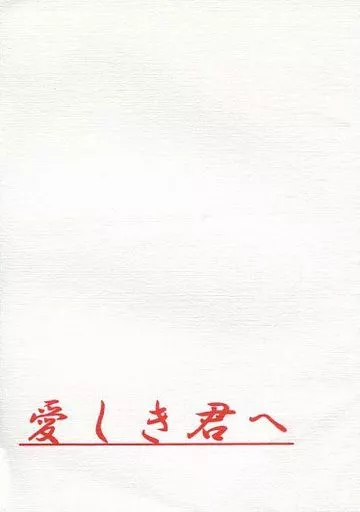 愛しき君へ